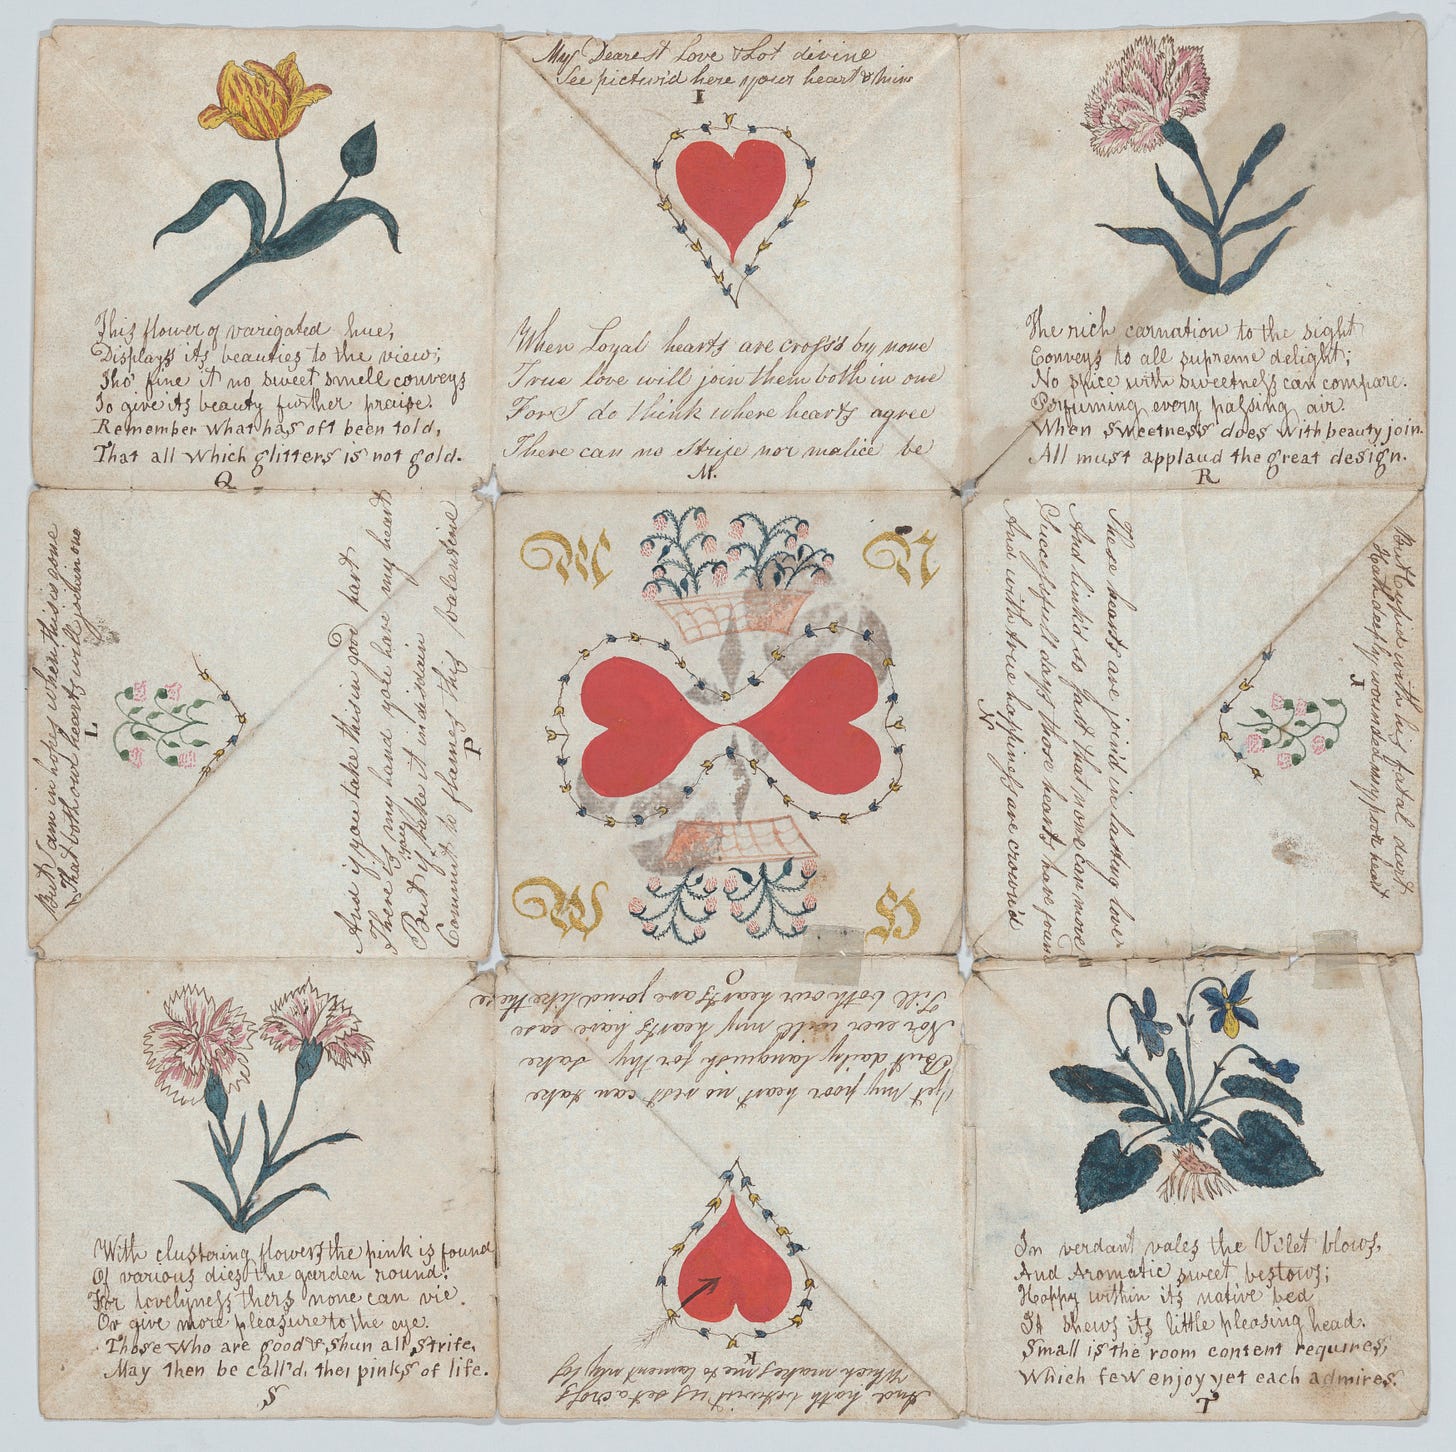 This flower of varigated hue,
Displays its beauties to the view;
Tho' fine it no sweet smell conveys
To give its beauty further praise.
Remember what has oft been told,
That all which glitters is not gold.
Q
My Dearest Love & Lot divine
See pictur'd here your heart & mine
I
When Loyal hearts are cross'd by none
True love will join them both in one
For I do think where hearts agree
There can no strife nor malice be
M.
The rich carnation to the sight
Conveys to all supreme delight;
No spice with sweetness can compare.
Perfuming every passing air.
When sweetness does with beauty join.
All must applaud the great design.
R
But am in hopes when this is gone
That both our hearts will join in one
L
And if you take this in good part
There is my hand you have my heart
But if you take it in disdain
Commit to flames this valentine
P
M N
W H
These hearts are join'd in lasting love
And link'd so fast that none can move
Successfull days those hearts have found
And with true happiness are crown'd
N
But Cupid with his fatal dart
Hath deeply wounded my poor heart
I
With clustering flowers the pink is found
Of various dies the garden round:
For lovelyness thers none can vie.
Or give more pleasure to the eye.
Those who are good & shun all strife,
May then be call'd, the pinks of life.
S
Yet my poor heart no rest can take
But daily languish for thy sake
Nor ever will my hearts have ease
Till both our hearts are joind like these
O
And hath betwixt us set a cross
Which makes me to lament my los
K
In verdant vales the Vilet blows,
And Aromatic sweet bestows;
Happy within its native bed
It shews its little pleasing head.
Small is the room content requires,
Which few enjoy yet each admires.
T